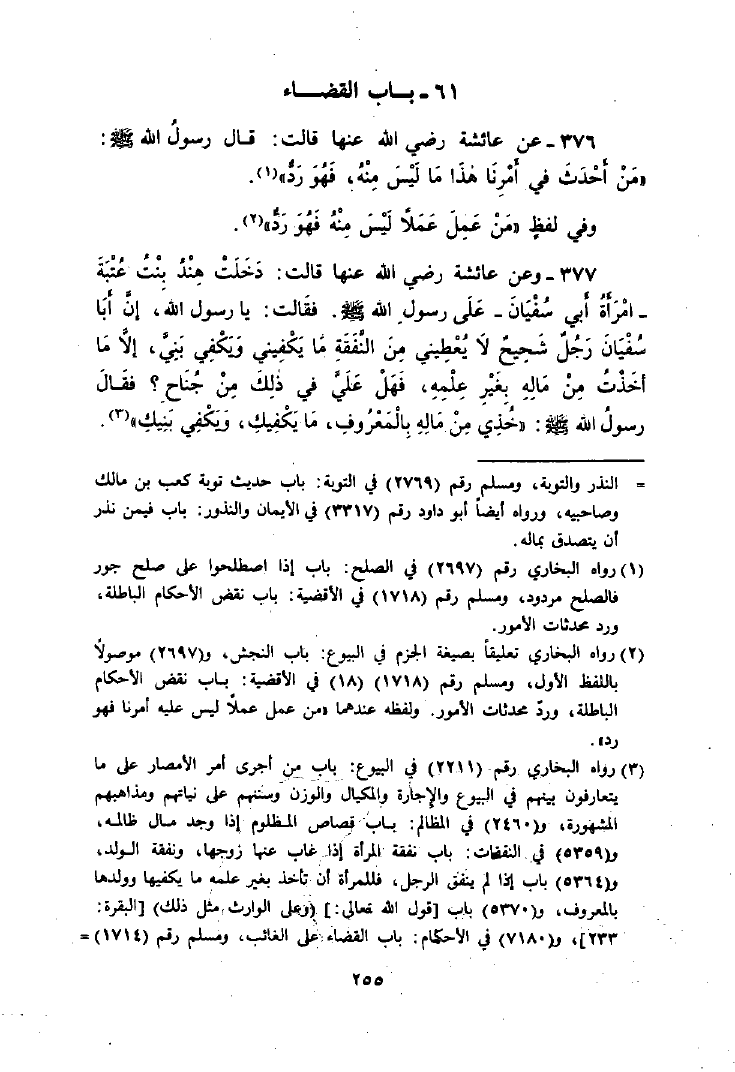 ٦١ ـ بـاب القضـــاء
٣٧٦ ـ عن عائشة رضي الله عنها قالت: قـال رسولُ الله ﷺ:
«مَنْ أَحْدَثَ في أَمْرِنَا هٰذَا مَا لَيْسَ مِنْهُ، فَهُوَ رَدٌّ»(١).
وفي لفظٍ «مَنْ عَمِلَ عَمَلًا لَيْسَ مِنْهُ فَهُوَ رَدٌّ»(٢).
٣٧٧ ـ وعن عائشة رضي الله عنها قالت: دَخَلَتْ هِنْدُ بِنْتُ عُتْبَةَ
ـ امْرَأَةُ أَبي سُفْيَانَ ـ عَلَى رسولِ الله ﷺ. فقَالت: يا رسول الله، إنَّ أَبَا
سُفْيَانَ رَجُلٌ شَحِيحٌ لَا يُعْطِيني مِنَ النَّفَقَةِ مَا يَكْفِيني وَيَكْفِي بَنِيَّ، إلَّا مَا
أخَذْتُ مِنْ مَالِهِ بِغَيْرِ عِلْمِهِ، فَهَلْ عَلَيَّ في ذٰلِكَ مِنْ جُنَاحٍ؟ فقَـالَ
رسولُ الله ﷺ: «خُذِي مِنْ مَالِهِ بِالْمَعْرُوفِ، مَا يَكْفِيكِ، وَيَكْفِي بَنِيكِ»(٣).
= النذر والتوبة، ومسلم رقم (٢٧٦٩) في التوبة: باب حديث توبة كعب بن مالك
وصاحبيه، ورواه أيضاً أبو داود رقم (٣٣١٧) في الأيمان والنذور: باب فيمن نذر
أن يتصدق بماله.
(١) رواه البخاري رقم (٢٦٩٧) في الصلح: باب إذا اصطلحوا على صلح جور
فالصلح مردود، ومسلم رقم (١٧١٨) في الأقضية: باب نقض الأحكام الباطلة،
ورد محدثات الأمور.
(٢) رواه البخاري تعليقاً بصيغة الجزم في البيوع: باب النجش، و(٢٦٩٧) موصولاً
باللفظ الأول، ومسلم رقم (١٧١٨) (١٨) في الأقضية: بـاب نقض الأحكام
الباطلة، وردّ محدثات الأمور. ولفظه عندهما «من عمل عملاً ليس عليه أمرنا فهو
رد».
(٣) رواه البخاري رقم (٢٢١١) في البيوع: باب من أجرى أمر الأمصار على ما
يتعارفون بينهم في البيوع والإجارة والمكيال والوزن وسننهم على نياتهم ومذاهبهم
المشهورة، و(٢٤٦٠) في المظالم: بـاب قصاص المـظلوم إذا وجد مـال ظالمـه،
و(٥٣٥٩) في النفقات: باب نفقة المرأة إذا غاب عنها زوجها، ونفقة الـولد،
و(٥٣٦٤) باب إذا لم ينفق الرجل، فللمرأة أن تأخذ بغير علمه ما يكفيها وولدها
بالمعروف، و(٥٣٧٠) باب [قول الله تعالى:] (وعلى الوارث مثل ذلك) [البقرة:
٢٣٣]، و(٧١٨٠) في الأحكام: باب القضاء على الغائب، ومسلم رقم (١٧١٤) =
٢٥٥